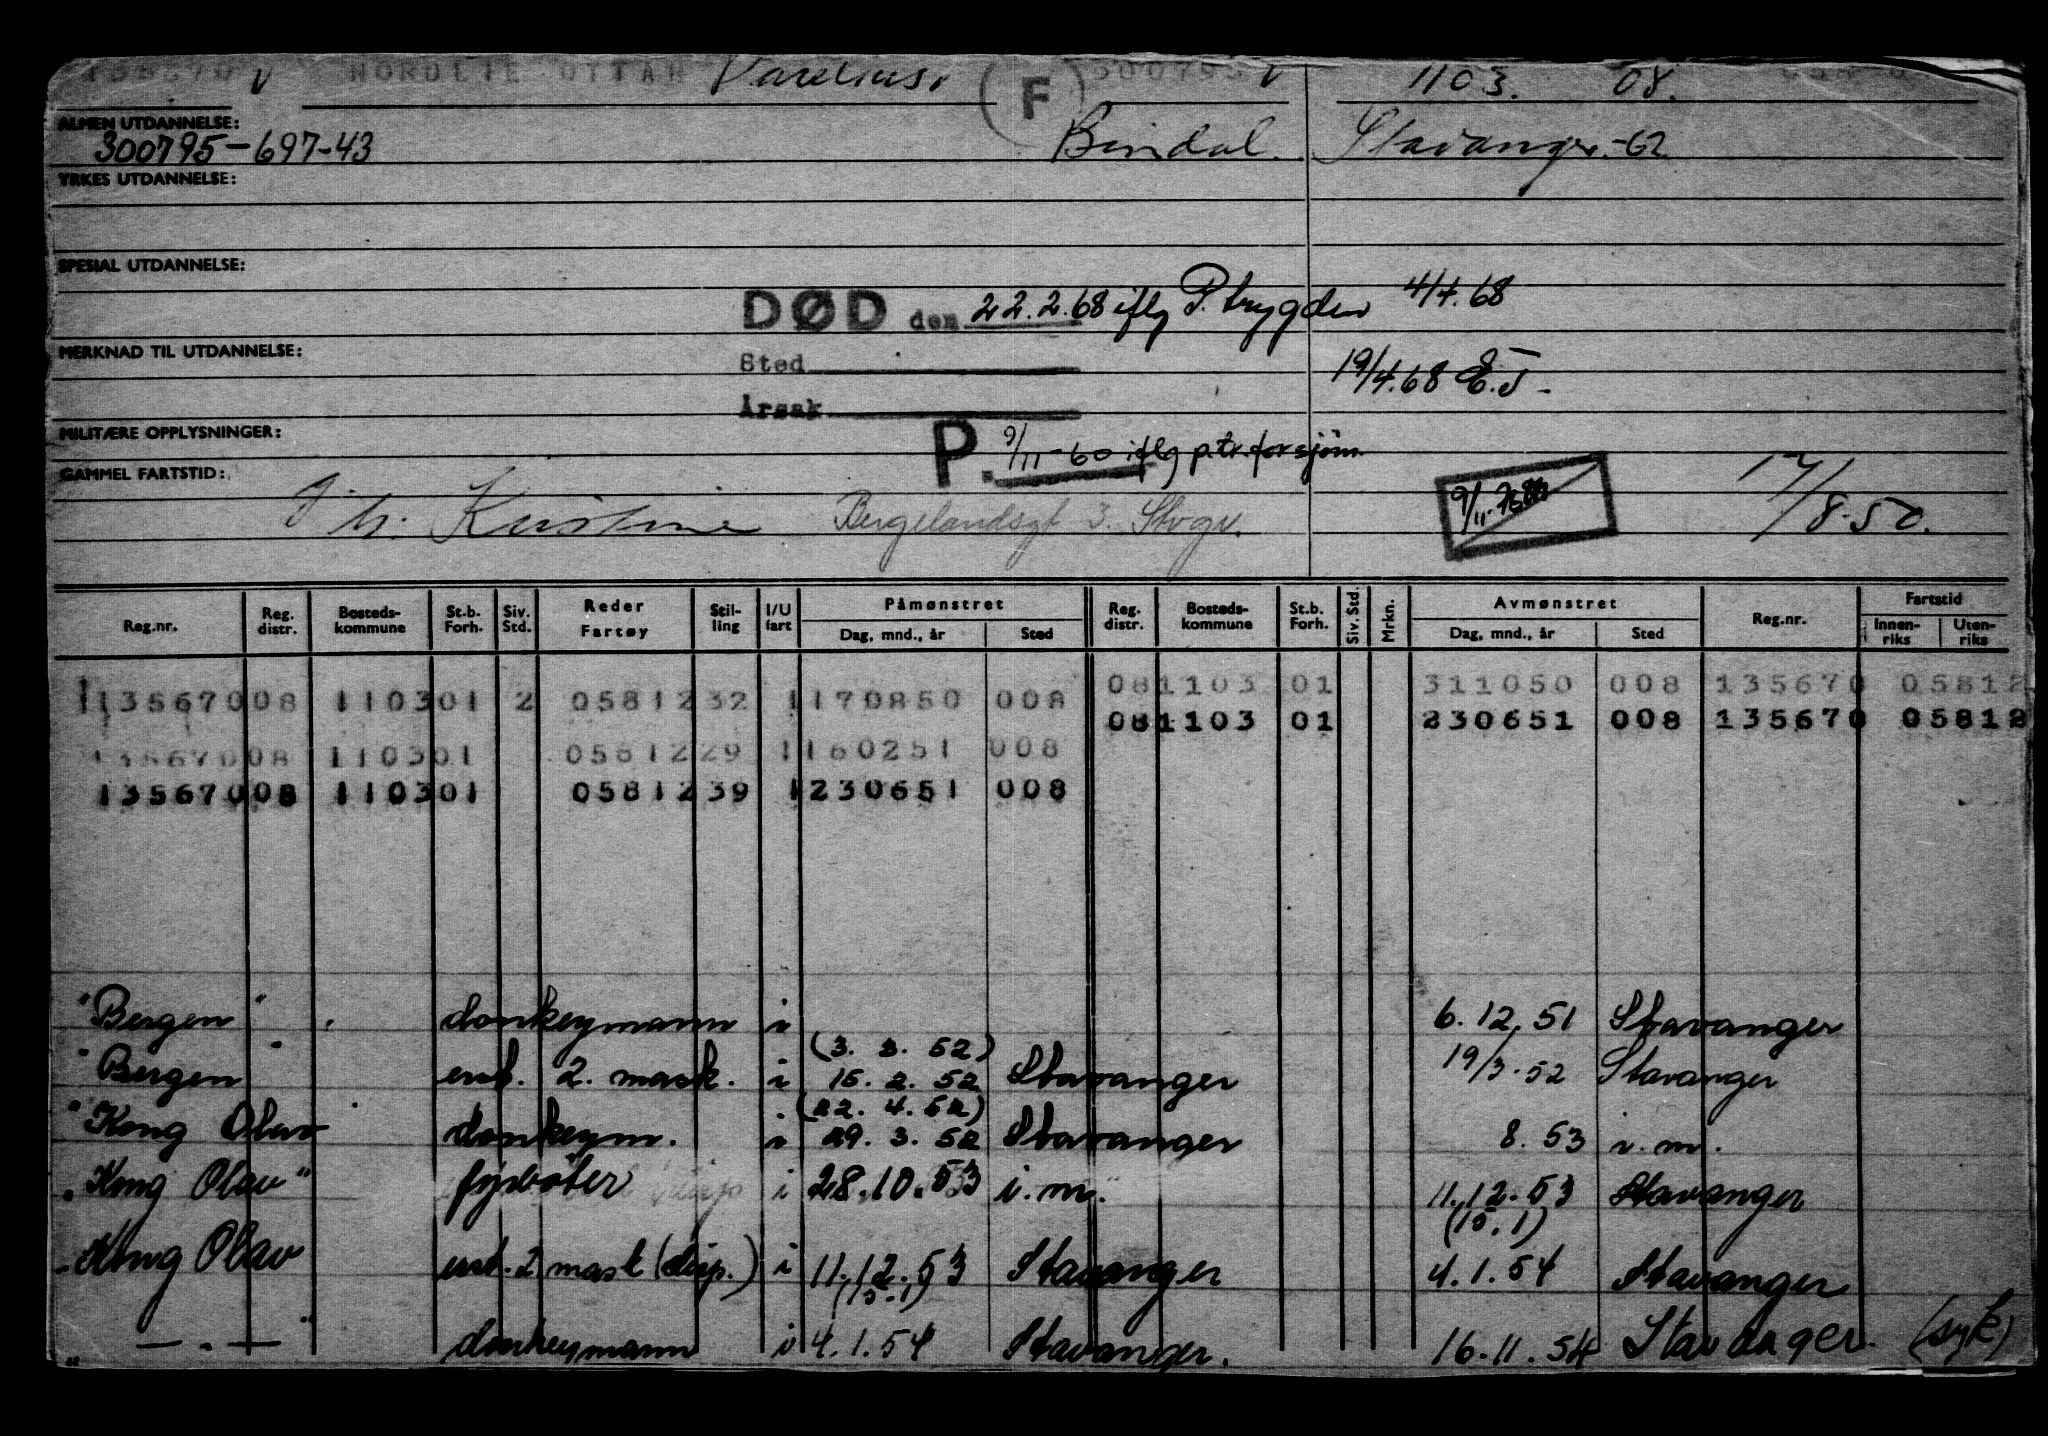 135670 V NORDLIE OTTAR Varelius. F 300795 V 1103. 08.
ALMEN UTDANNELSE:
300795-697-43 Bindal. Stavanger.-62
YRKES UTDANNELSE:
SPESIAL UTDANNELSE:
DØD den 22.2.68 iflg P.trygden 4/4.68
MERKNAD TIL UTDANNELSE:
Sted 19/4.68 E.J-
Årsak
MILITÆRE OPPLYSNINGER:
P. 9/11-60 iflg p.tr.for sjøm.
GAMMEL FARTSTID:
Kristine Bergelandsgt 3. Stvgr. 9/11- 17/8.50.
Reg.nr. Reg. distr. Bosteds-kommune St.b. Forh. Siv. Std. Reder Fartøy Stil-ling I/U fart Påmønstret Dag, mnd., år Sted Reg. distr. Bosteds-kommune St.b. Forh. Siv. Std. Mrkn. Avmønstret Dag, mnd., år Sted Reg.nr. Fartstid Innen-riks Uten-riks
113567008 110301 2 0581232 1170850 008 081103 01 311050 008 135670 05812
081103 01 230651 008 135670 05812
13567008 110301 0581229 1160251 008
13567008 110301 0581239 1230651 008
"Bergen" donkeymann i 6.12.51 Stavanger
(3. 3. 52)
"Bergen" erst. 2. mask. i 15. 2. 52 Stavanger 19/3.52 Stavanger
(22. 4. 52)
"Kong Olav donkeym. i 29. 3. 52 Stavanger 8. 53 i.m.
"Kong Olav" fyrbøter i 28.10.53 i.m. 11.12.53 Stavanger
(15.1)
"Kong Olav erst. 2 mask (disp.) i 11.12.53 Stavanger 4.1.54 Stavanger
(15.1)
— . — " donkeymann i 4.1.54 Stavanger. 16.11.54 Stavanger. (syk)